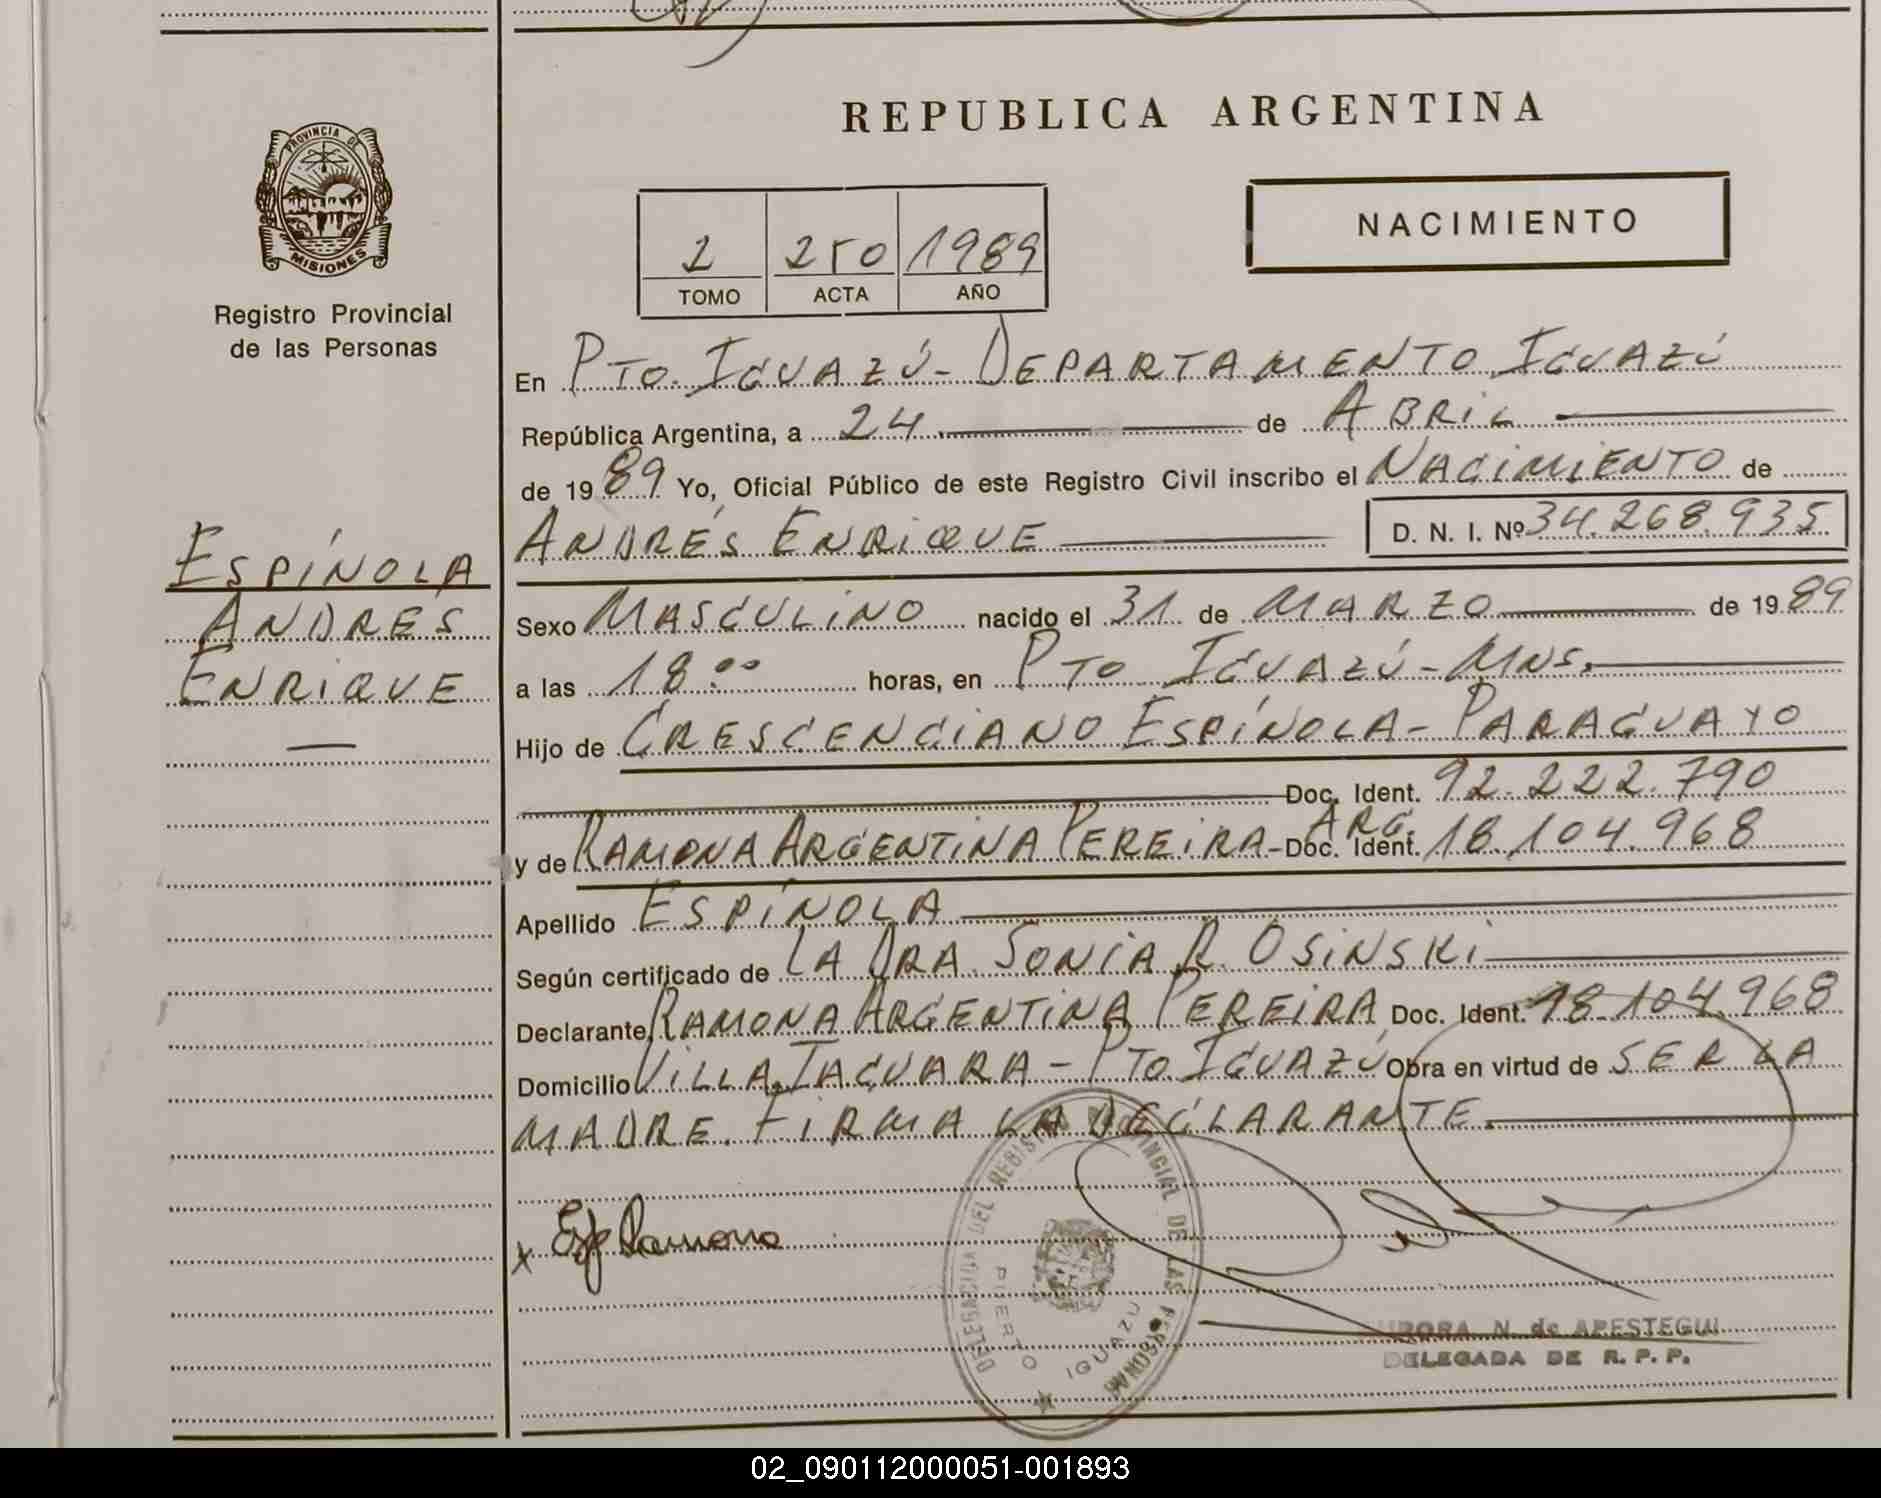 REPUBLICA ARGENTINA
PROVINCIA DE
MISIONES
Registro Provincial
de las Personas
NACIMIENTO
2 250 1989
TOMO ACTA AÑO
En PTO. IGUAZÚ - DEPARTAMENTO IGUAZÚ
República Argentina, a 24 de ABRIL
de 1989 Yo, Oficial Público de este Registro Civil inscribo el NACIMIENTO de
ANDRÉS ENRIQUE D. N. I. Nº 34.268.935
ESPÍNOLA
ANDRES
ENRIQUE
Sexo MASCULINO nacido el 31 de MARZO de 1989
a las 18:00 horas, en PTO IGUAZÚ - MNS.
Hijo de CRESCENCIANO ESPÍNOLA - PARAGUAYO
Doc. Ident. 92.222.790
y de RAMONA ARGENTINA PEREIRA - ARG. Doc. Ident. 18.104.968
Apellido ESPÍNOLA
Según certificado de LA DRA. SONIA R. OSINSKI
Declarante RAMONA ARGENTINA PEREIRA Doc. Ident. 18.104.968
Domicilio VILLA TACUARA - PTO. IGUAZÚ Obra en virtud de SER LA
MADRE. FIRMA LA DECLARANTE.
x Ramona
DELEGACION DEL REGISTRO PROVINCIAL DE LAS PERSONAS
PUERTO IGUAZU
N. de APESTEGUI
DELEGADA DE R. P. P.
02_090112000051-001893